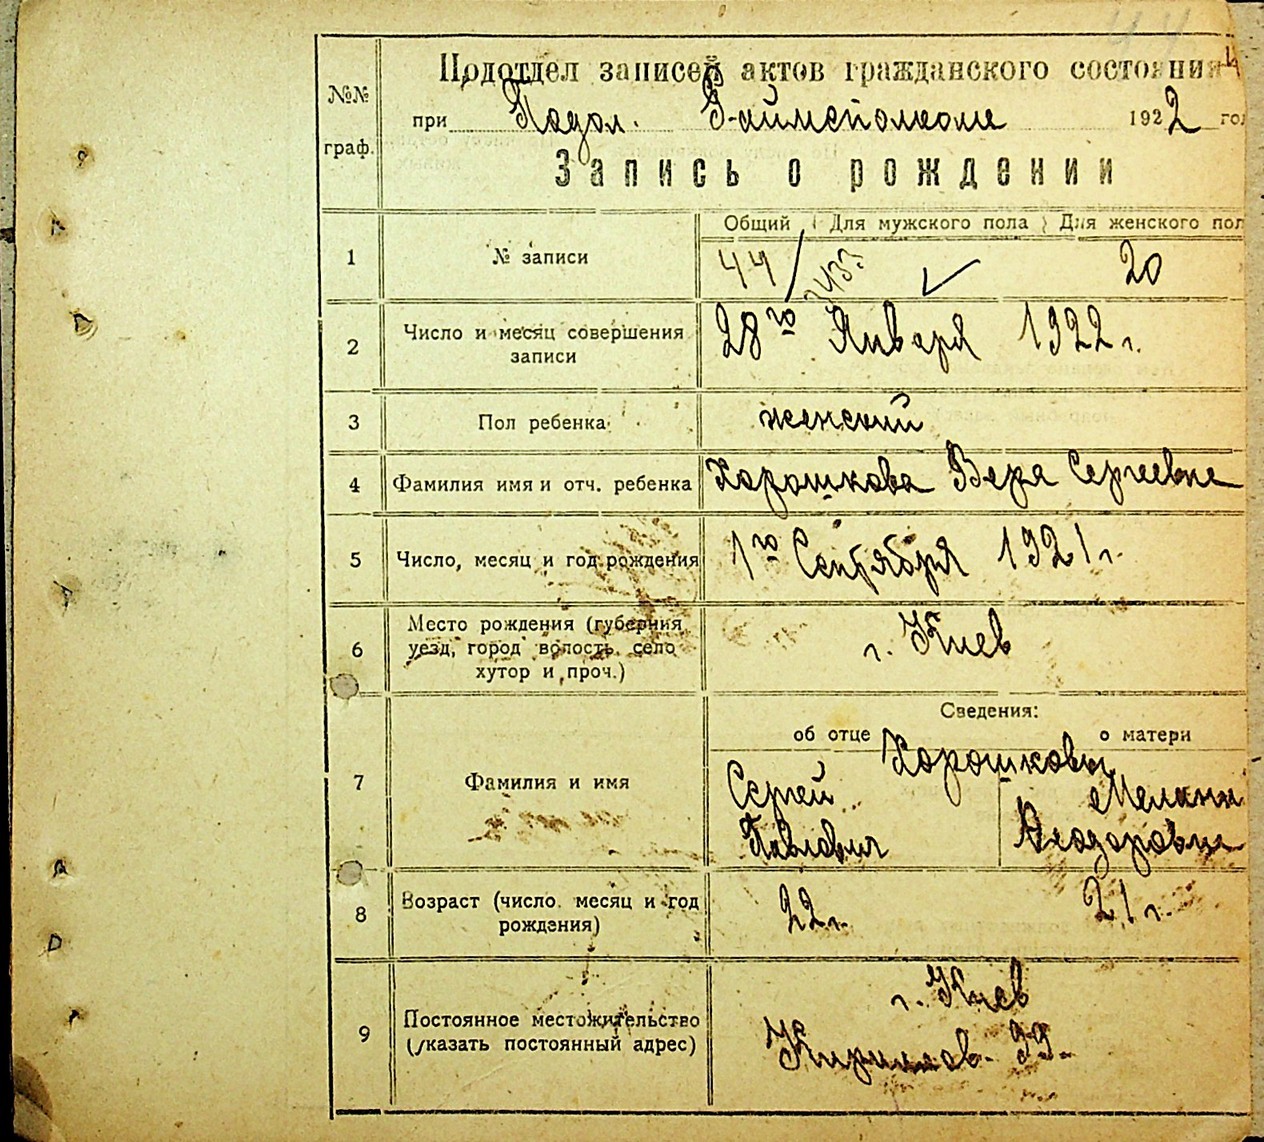 44
№№
граф.
Подотдел записей актов гражданского состояния
при Подол. Р-айисполкоме 1922 год
Запись о рождении
Общий Для мужского пола Для женского пол
1 № записи 44/ 20
2 Число и месяц совершения записи 28го Января 1922 г.
3 Пол ребенка женский
4 Фамилия имя и отч. ребенка Харошкова Вера Сергеевна
5 Число, месяц и год рождения 1го Сентября 1921 г.
6 Место рождения (губерния, уезд, город волость село хутор и проч.) г. Киев
Сведения:
об отце о матери
Харошковы
7 Фамилия и имя Сергей Павлович Мелания Феодоровна
8 Возраст (число месяц и год рождения) 22 г. 21 г.
9 Постоянное местожительство (указать постоянный адрес) г. Киев
Кирилов. 99.